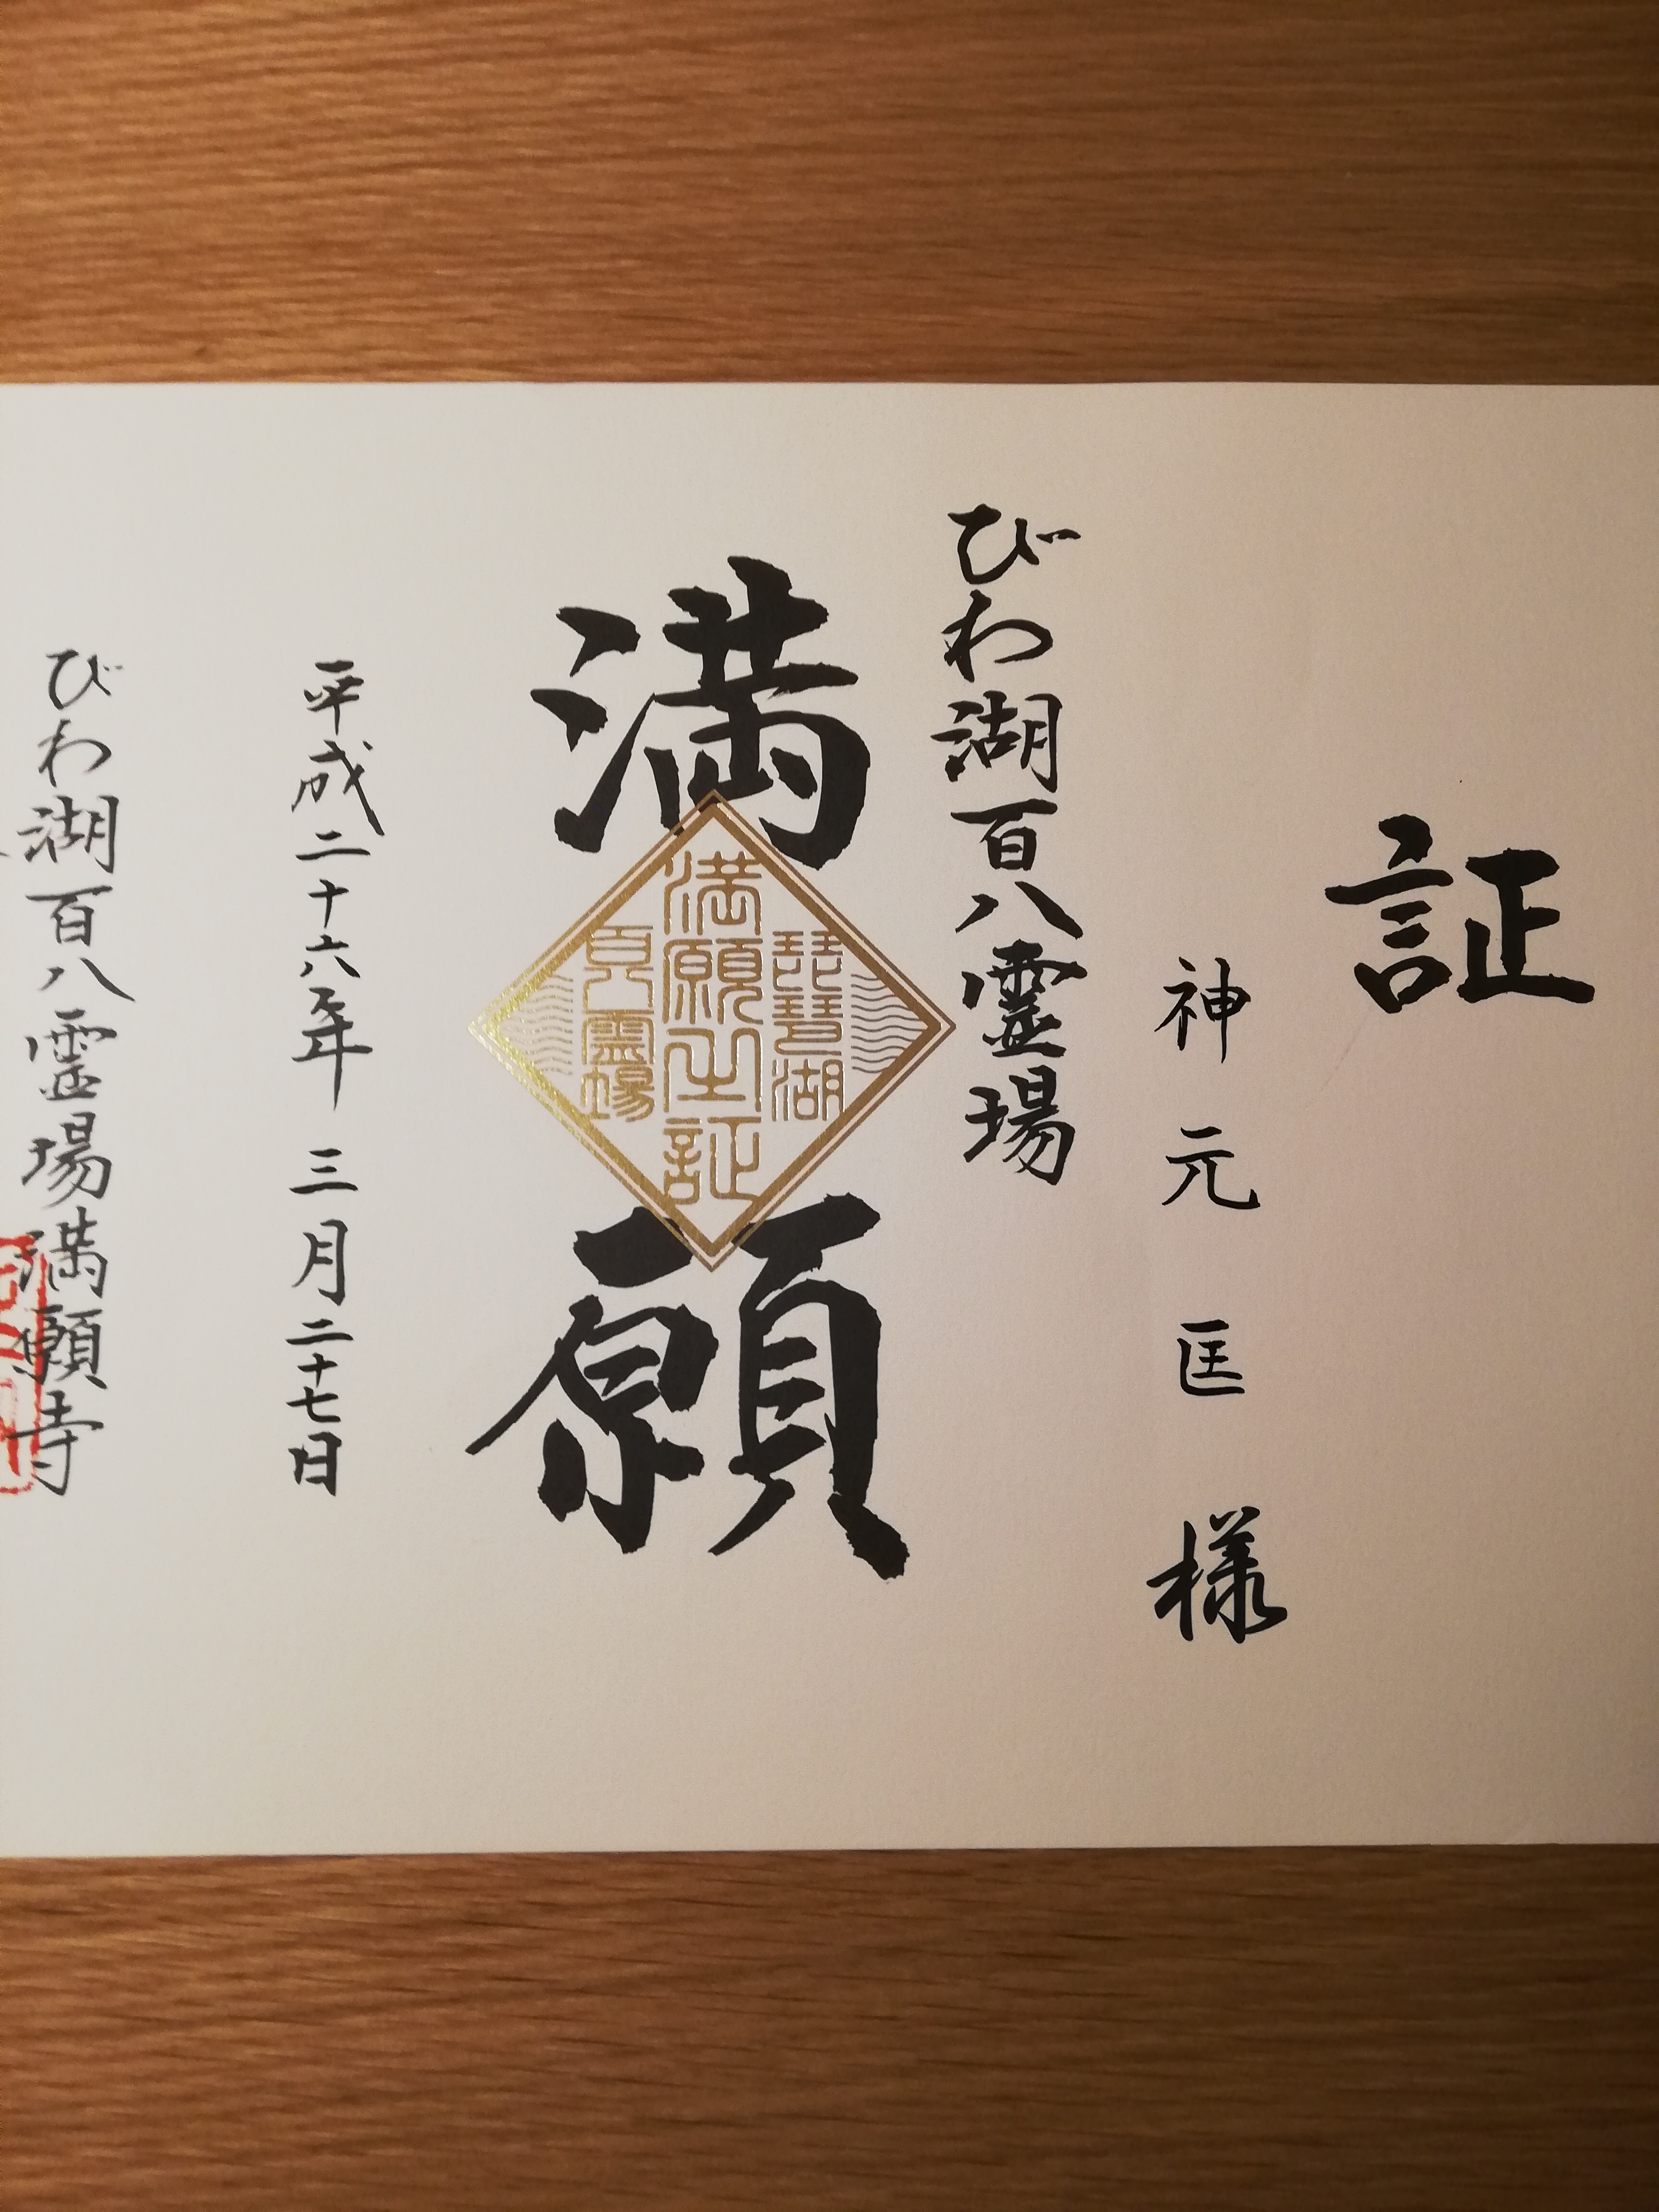 証
神元匡様
びわ湖百八霊場
満願
琵琶湖
満願之証
百八霊場
平成二十六年三月二十七日
びわ湖百八霊場満願寺